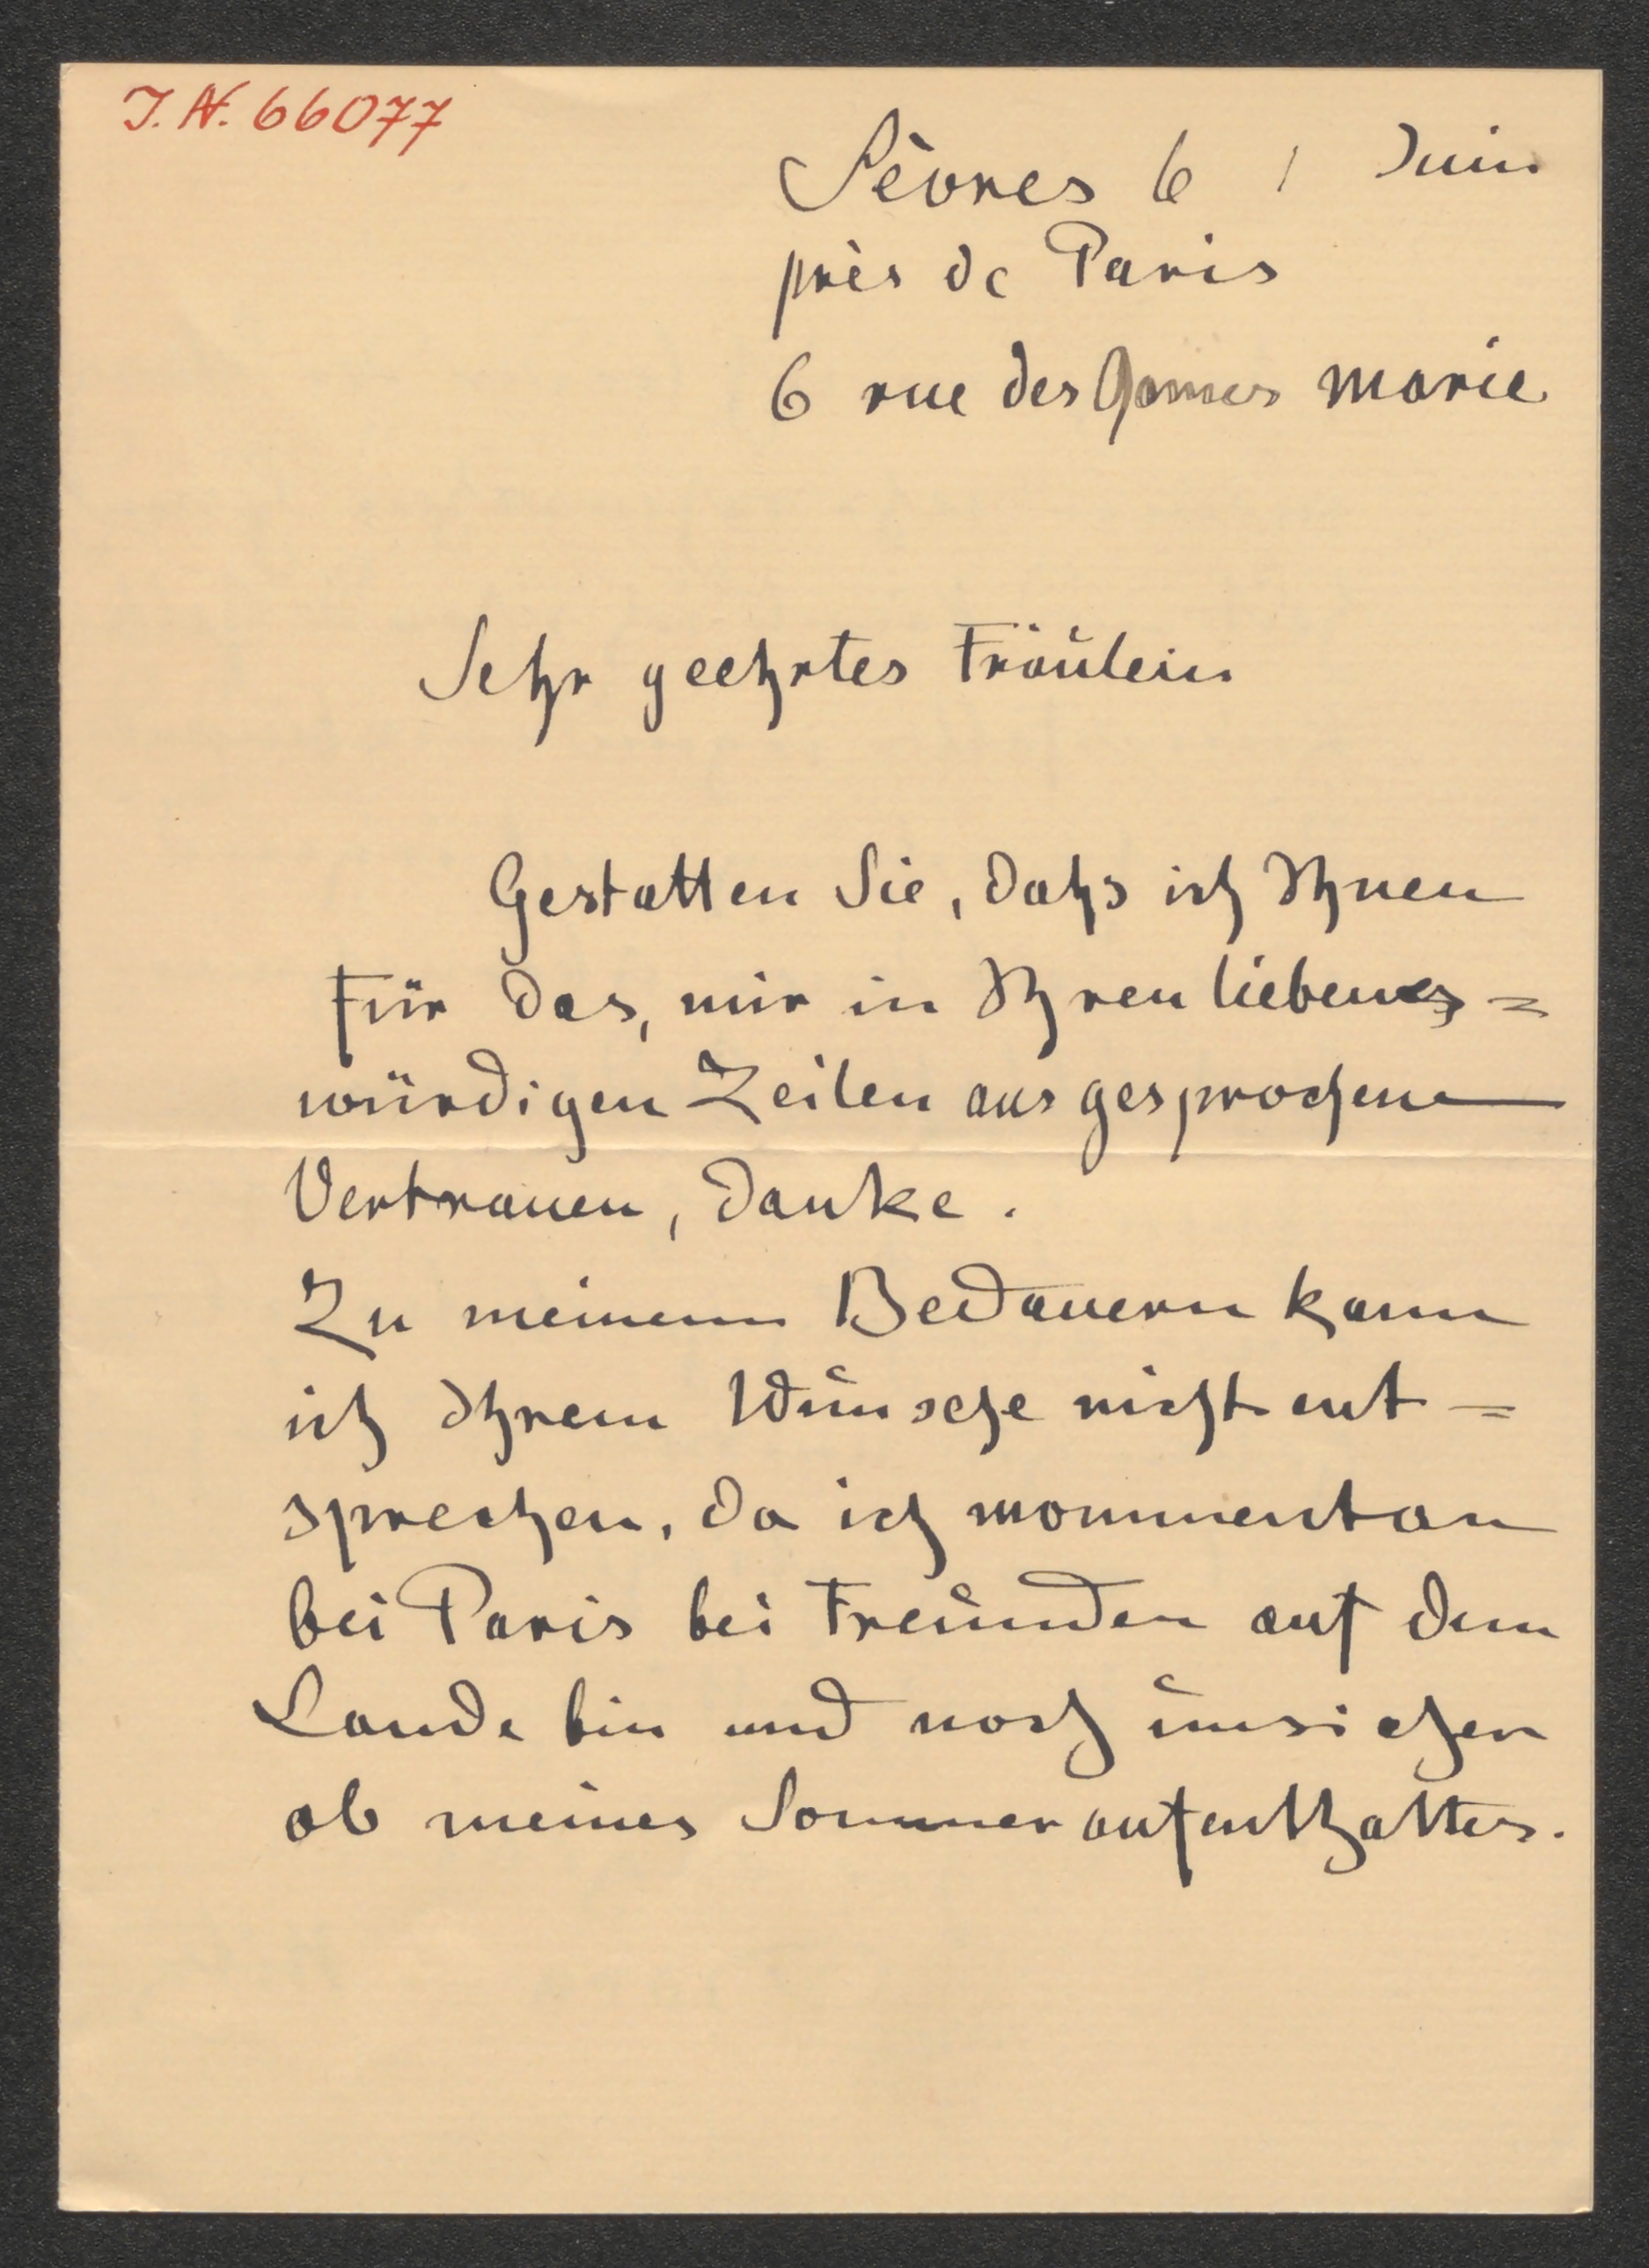 J. N. 66077
Sèvres 6 / Juin
près de Paris
6 rue des Marie
Sehr geehrtes Fräulein
Gestatten Sie, dahs ich Ihnen
für das, mir in Ihren liebens =
würdigen Zeilen ausgesprochene
Vertrauen, danke.
Zu meinem Bedauern kann
ich Ihrem Wunsche nicht ent =
sprechen, da ich mommentan
bei Paris bei Freunden auf dem
Lande bin und noch unsicher
ob meines Sommeraufenthaltes.